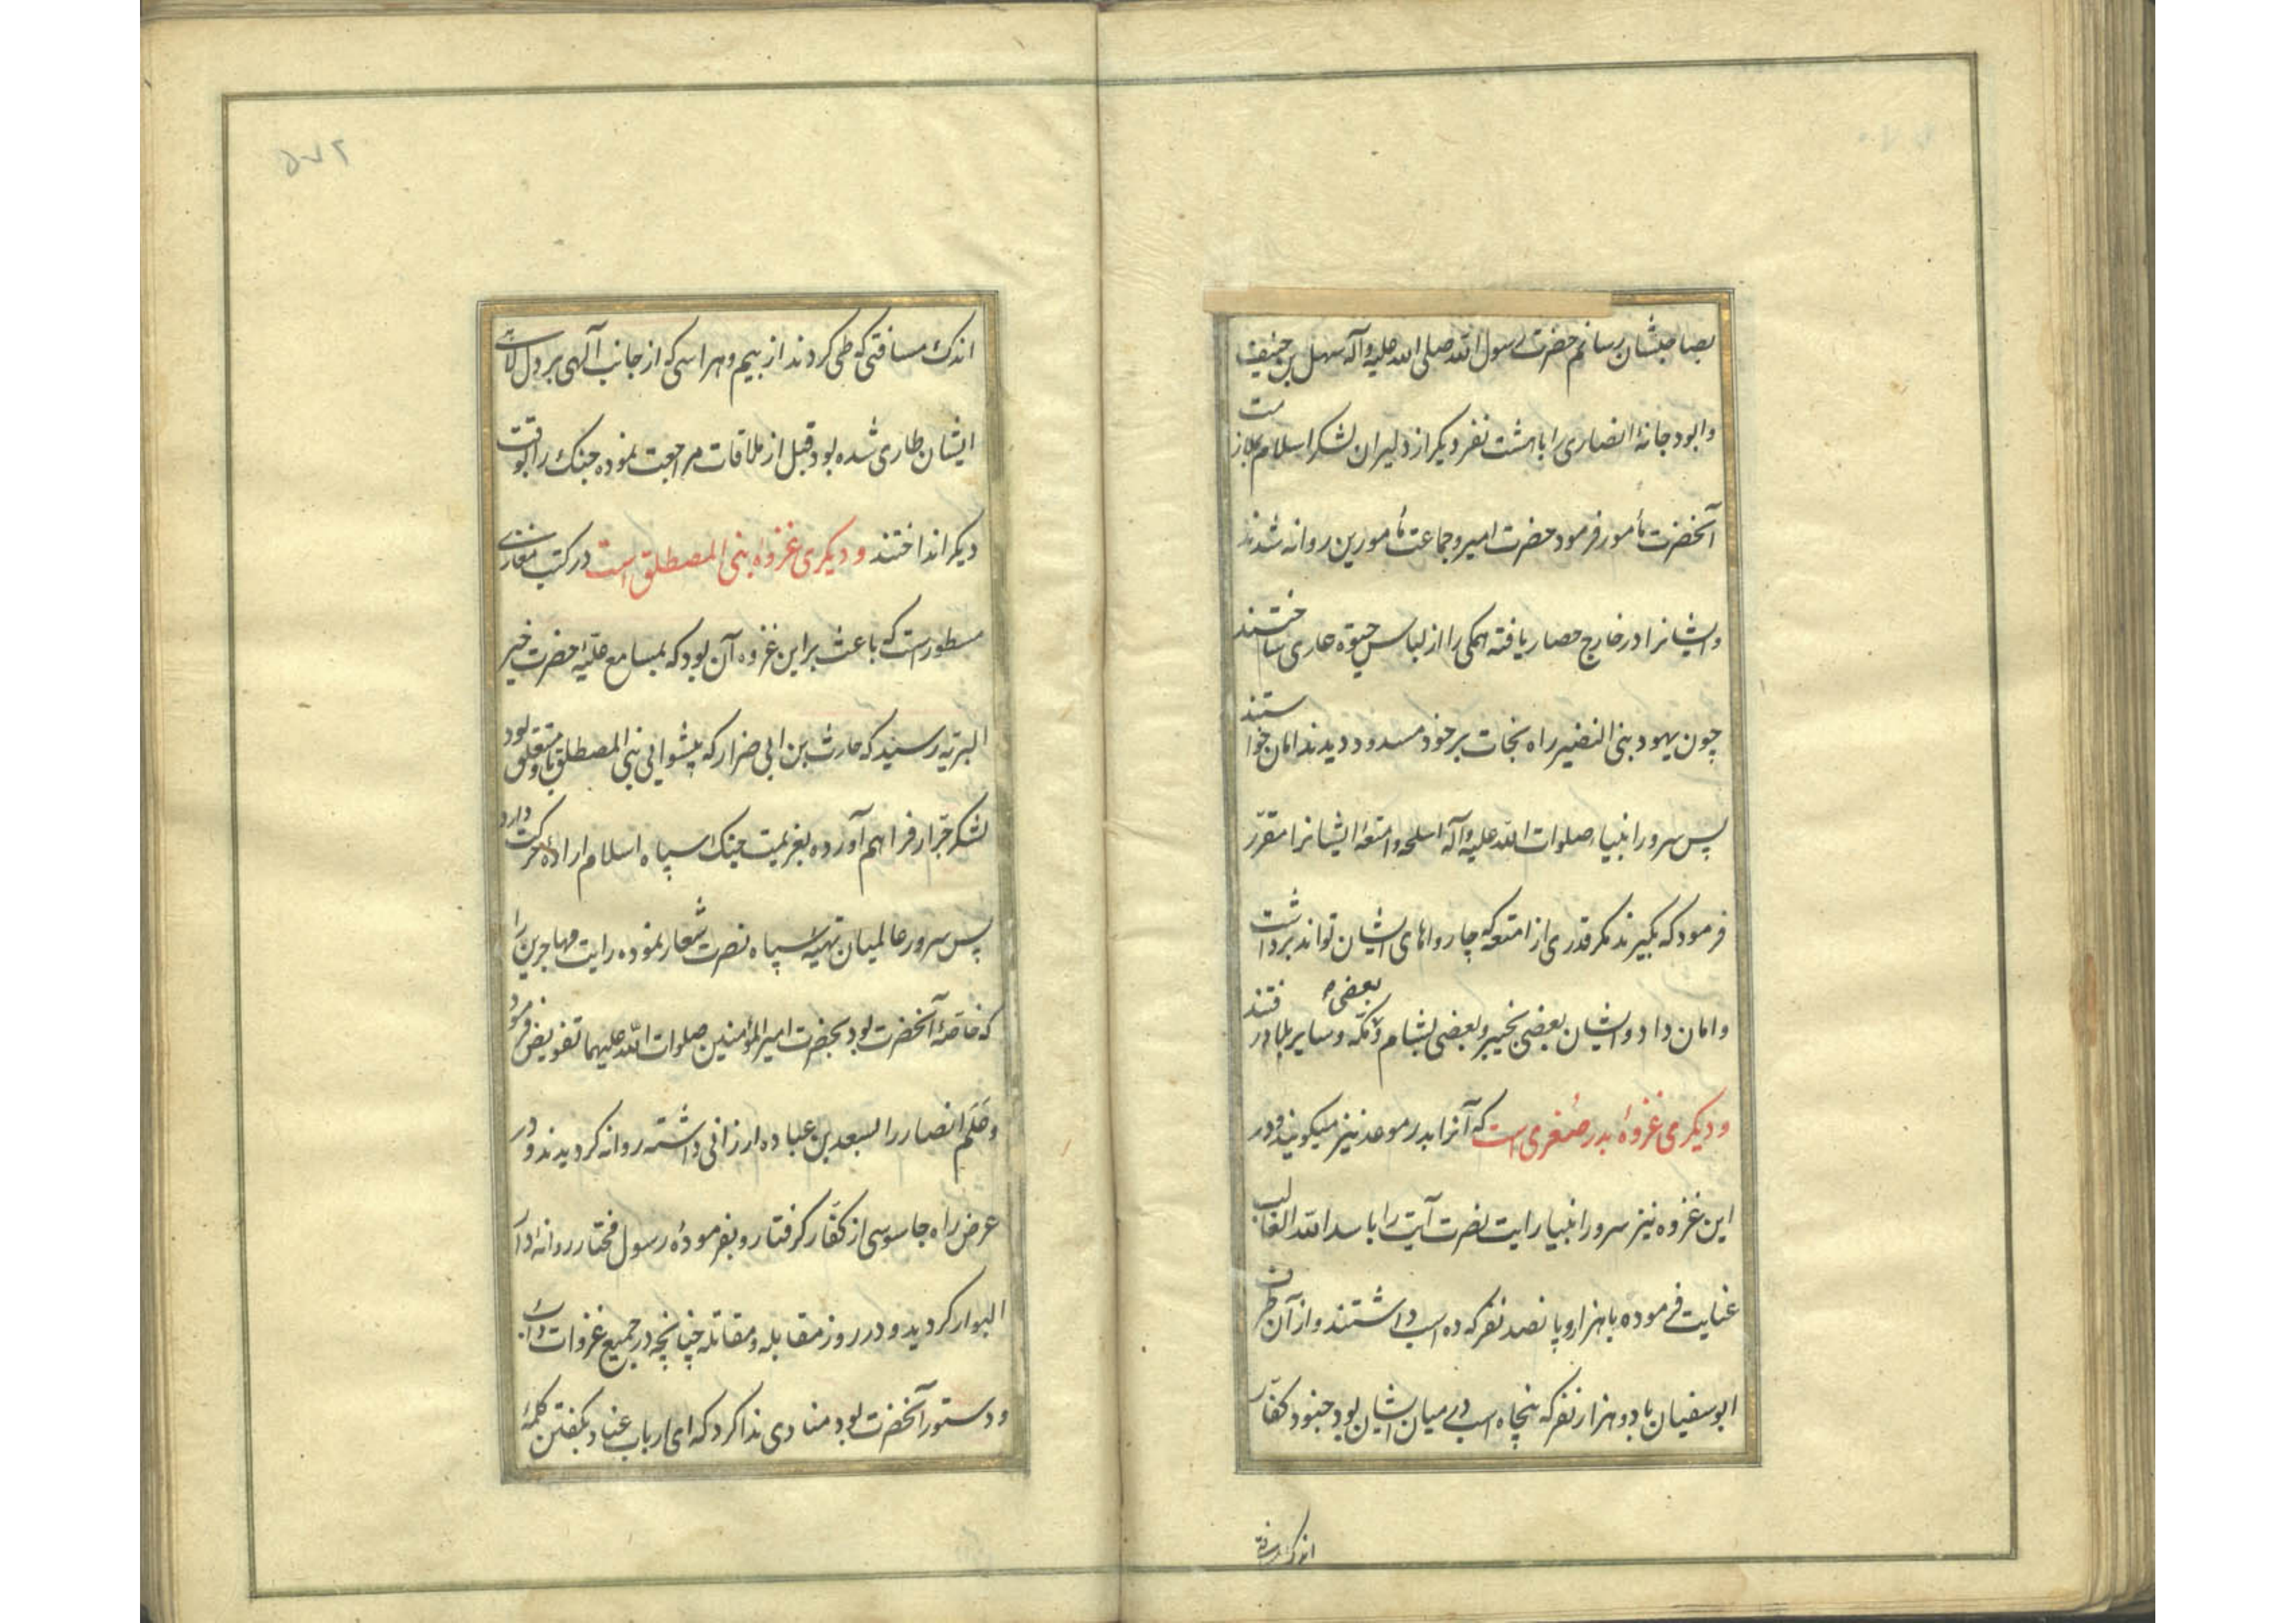 بصاحبشان رسانم حضرت رسول الله صلی الله علیه وآله سهل بن حنیف
وابودجانهٔ انصاری را باهشت نفر دیکر از دلیران لشکر اسلام بملازمت
آنحضرت مأمور فرمود حضرت امیر وجماعت مأمورین روانه شدند
وایشانرا در خارج حصار یافته همکی را از لباس حیوة عاری ساختند
چون یهود بنی النضیر راه نجات بر خود مسدود دیدند امان خواستند
پس سرور انبیاء صلوات الله علیه وآله اسلحه وامتعهٔ ایشانرا مقرّر
فرمود که بکیرند مکر قدری از امتعه که چارواهای ایشان تواند برداشت
وامان داد وایشان بعضی بخیبر وبعضی بشام وبعضی بمکه وسایر بلاد رفتند
ودیکری غزوهٔ بدر صغری است که آنرا بدر موعد نیز میکویند ودر
این غزوه نیز سرور انبیا رایت نصرت آیت را باسد الله الغالب
عنایت فرموده باهزار وپانصد نفر که ده اسب داشتند واز آن طرف
ابوسفیان بادوهزار نفر که پنجاه اسب در میان ایشان بود جنود کفّار
اندک مسافتی
۵۷۲
اندک مسافتی که طی کردند از بیم وهراسی که از جانب آلهی بر دل
ایشان طاری شده بود قبل از ملاقات مراجعت نموده جنک را بوقت
دیکر انداختند ودیکری غزوهٔ بنی المصطلق است در کتب مغازی
مسطور است که باعث بر این غزوه آن بود که بمسامع علیّهٔ حضرت خیر
البریّه رسید که حارث بن ابی ضرار که پیشوایی بنی المصطلق باو متعلق بود
لشکر جرّار فراهم آورده بعزیمت جنک سپاه اسلام ارادهٔ حرکت دارد
پس سرور عالمیان تهیّهٔ سپاه نصرت شعار نموده رایت مهاجرین را
که خاصّهٔ آنحضرت بود بحضرت امیرالمؤمنین صلوات الله علیهما تفویض فرمود
وعَلَم انصار را بسعد بن عباده ارزانی داشته روانه کردیدند ودر
عرض راه جاسوسی از کفّار کرفتار وبفرمودهٔ رسول مختار روانهٔ دار
البوار کردید ودر روز مقابله ومقاتله چنانچه در جمیع غزوات داب
ودستور آنحضرت بود منادی ندا کرد که ای ارباب عناد بکفتن کلمهٔ